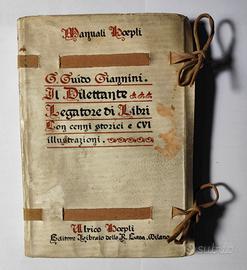 Manuali Hoepli
G. Guido Giannini.
Il Dilettante
Legatore di Libri
Con cenni storici e CVI
illustrazioni.
Ulrico Hoepli
Editore Libraio della R. Casa. Milano
subito